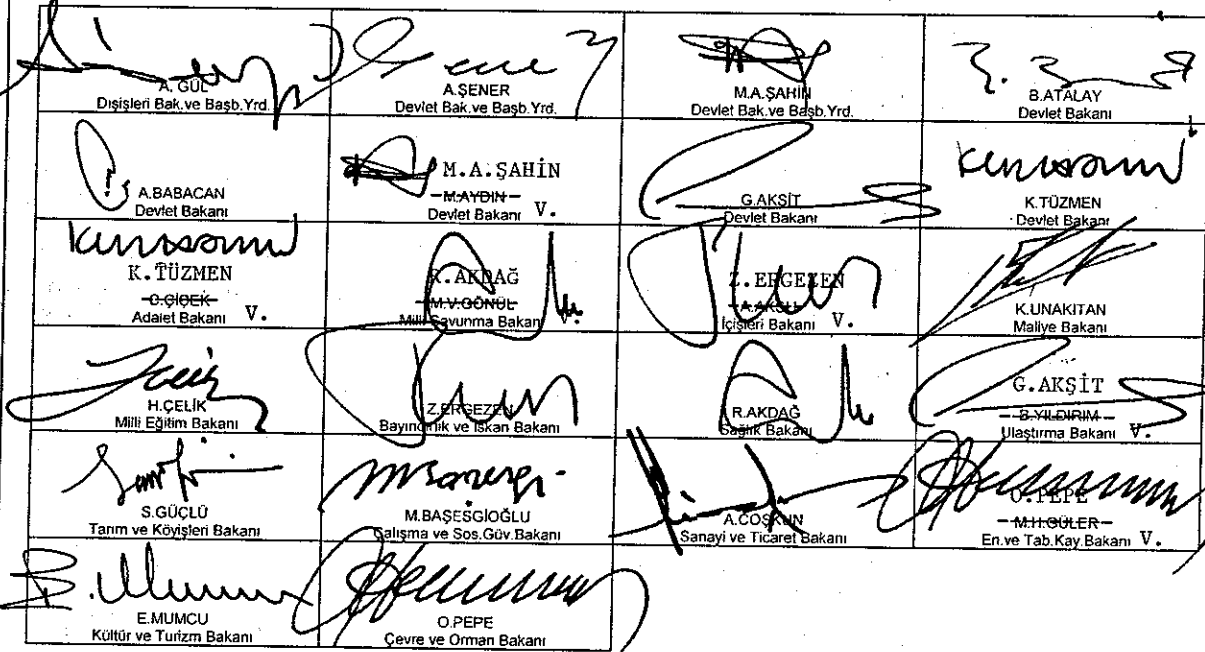 A. GÜL
Dışişleri Bak.ve Başb.Yrd.
A.ŞENER
Devlet Bak.ve Başb.Yrd.
M.A.ŞAHİN
Devlet Bak.ve Başb.Yrd.
B.ATALAY
Devlet Bakanı
A.BABACAN
Devlet Bakanı
M.A.ŞAHİN
M.AYDIN
Devlet Bakanı V.
G.AKŞİT
Devlet Bakanı
K.TÜZMEN
Devlet Bakanı
K.TÜZMEN
C.ÇİÇEK
Adalet Bakanı V.
R.AKDAĞ
M.V.GÖNÜL
Milli Savunma Bakanı V.
Z.ERGEZEN
A.AKSU
İçişleri Bakanı V.
K.UNAKITAN
Maliye Bakanı
H.ÇELİK
Milli Eğitim Bakanı
Z.ERGEZEN
Bayındırlık ve İskan Bakanı
R.AKDAĞ
Sağlık Bakanı
G.AKŞİT
B.YILDIRIM
Ulaştırma Bakanı V.
S.GÜÇLÜ
Tarım ve Köyişleri Bakanı
M.BAŞESGİOĞLU
Çalışma ve Sos.Güv.Bakanı
A.COŞKUN
Sanayi ve Ticaret Bakanı
O.PEPE
M.H.GÜLER
En.ve Tab.Kay.Bakanı V.
E.MUMCU
Kültür ve Turizm Bakanı
O.PEPE
Çevre ve Orman Bakanı